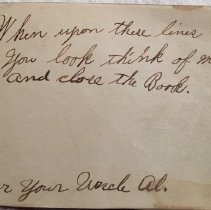 When upon these lines
You look think of m
and close the Book.
Your Uncle Al.